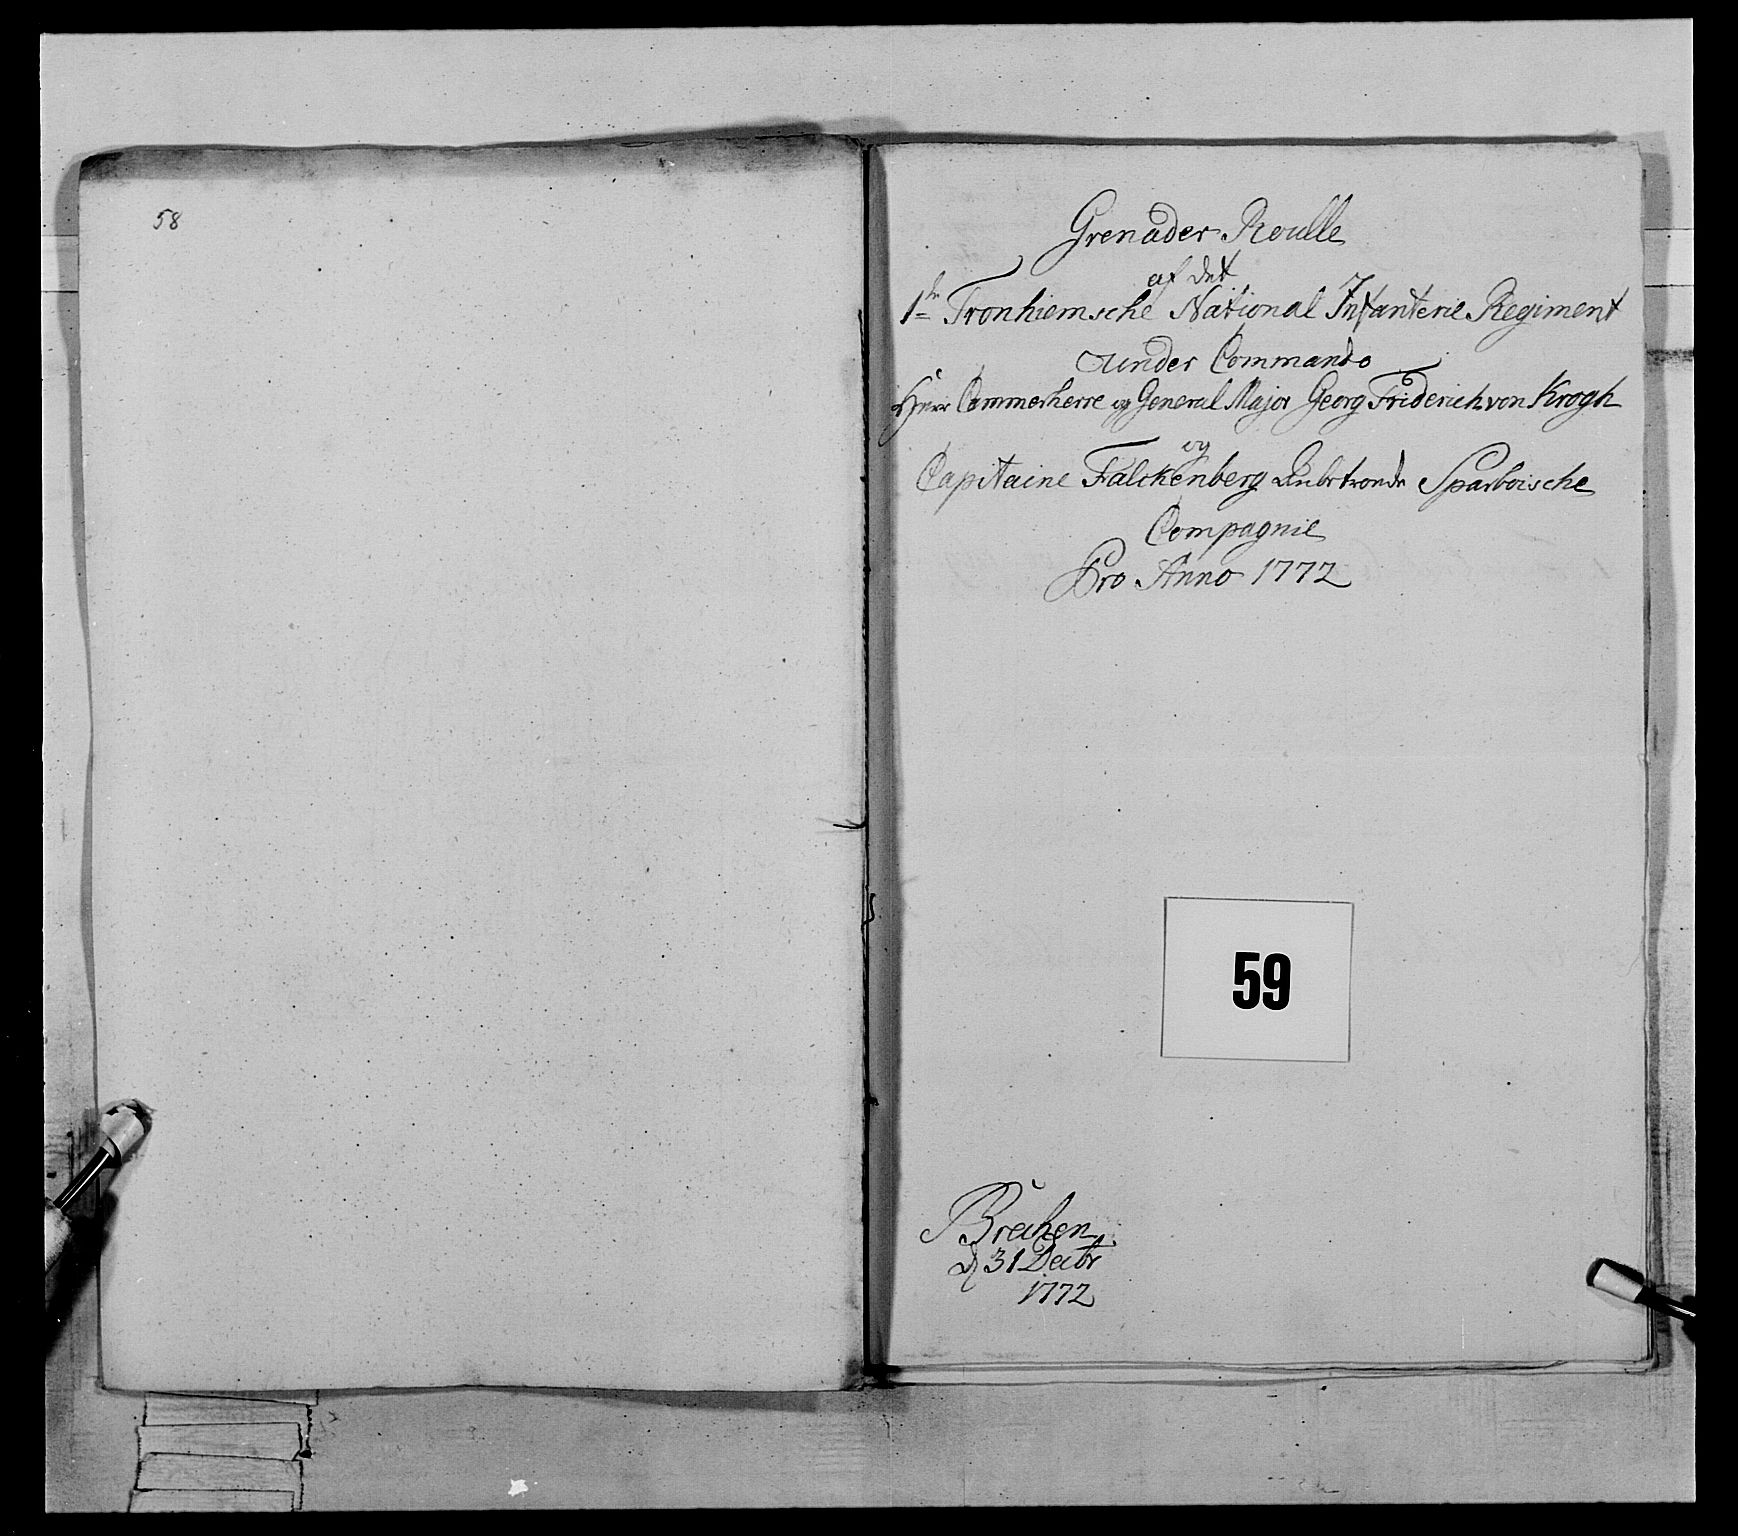 58
Grenader Roulle
af det
1te Tronhiemsche National Infanterie Regiment
under Commando
Herr Cammerherre og General Major Georg Friderich von Krogh
og
Capitaine Falckenberg Sparboische
Compagnie
Pro Anno 1772
59
d 31 Decbr
1772